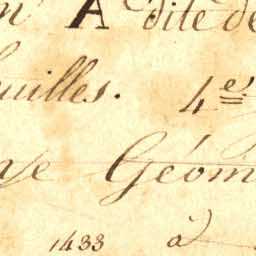 n A dite de
uilles. 4e
ne Géom
1433 à